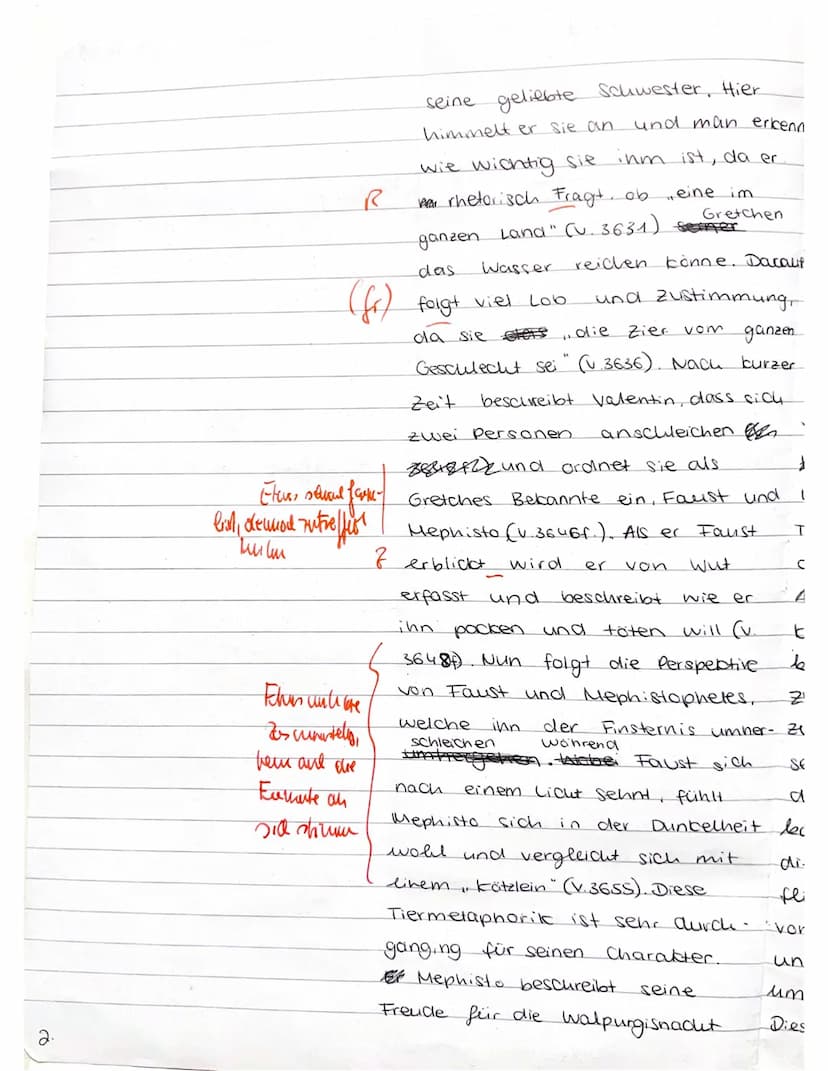 seine geliebte Schwester. Hier
himmelt er sie an und man erkenn
wie wichtig sie ihm ist, da er
R
rhetorisch Fragt, ob „eine im
Gretchen
ganzen Land" (V. 3631)
das Wasser reichen könne. Darauf
(fr)
folgt viel Lob und Zustimmung,
da sie „die Zier vom ganzen
Geschlecht sei" (V. 3636). Nach kurzer
Zeit beschreibt Valentin, dass sich
zwei Personen anschleichen
und ordnet sie als
Gretches Bekannte ein, Faust und
Mephisto (V. 3646f.). Als er Faust T
Z
erblickt wird er von Wut
erfasst und beschreibt wie er
ihn packen und töten will (V.
3648f). Nun folgt die Perspektive
von Faust und Mephistopheles,
welche in der Finsternis umher-
schleichen während
Faust sich
nach einem Licht sehnt, fühlt d
Mephisto sich in der Dunkelheit
wohl und vergleicht sich mit di-
einem „Kätzlein" (V. 3655). Diese
Tiermetaphorik ist sehr durch- vor
ganging für seinen Charakter. un
Mephisto beschreibt seine um
Freude für die Walpurgisnacht Dies
2.